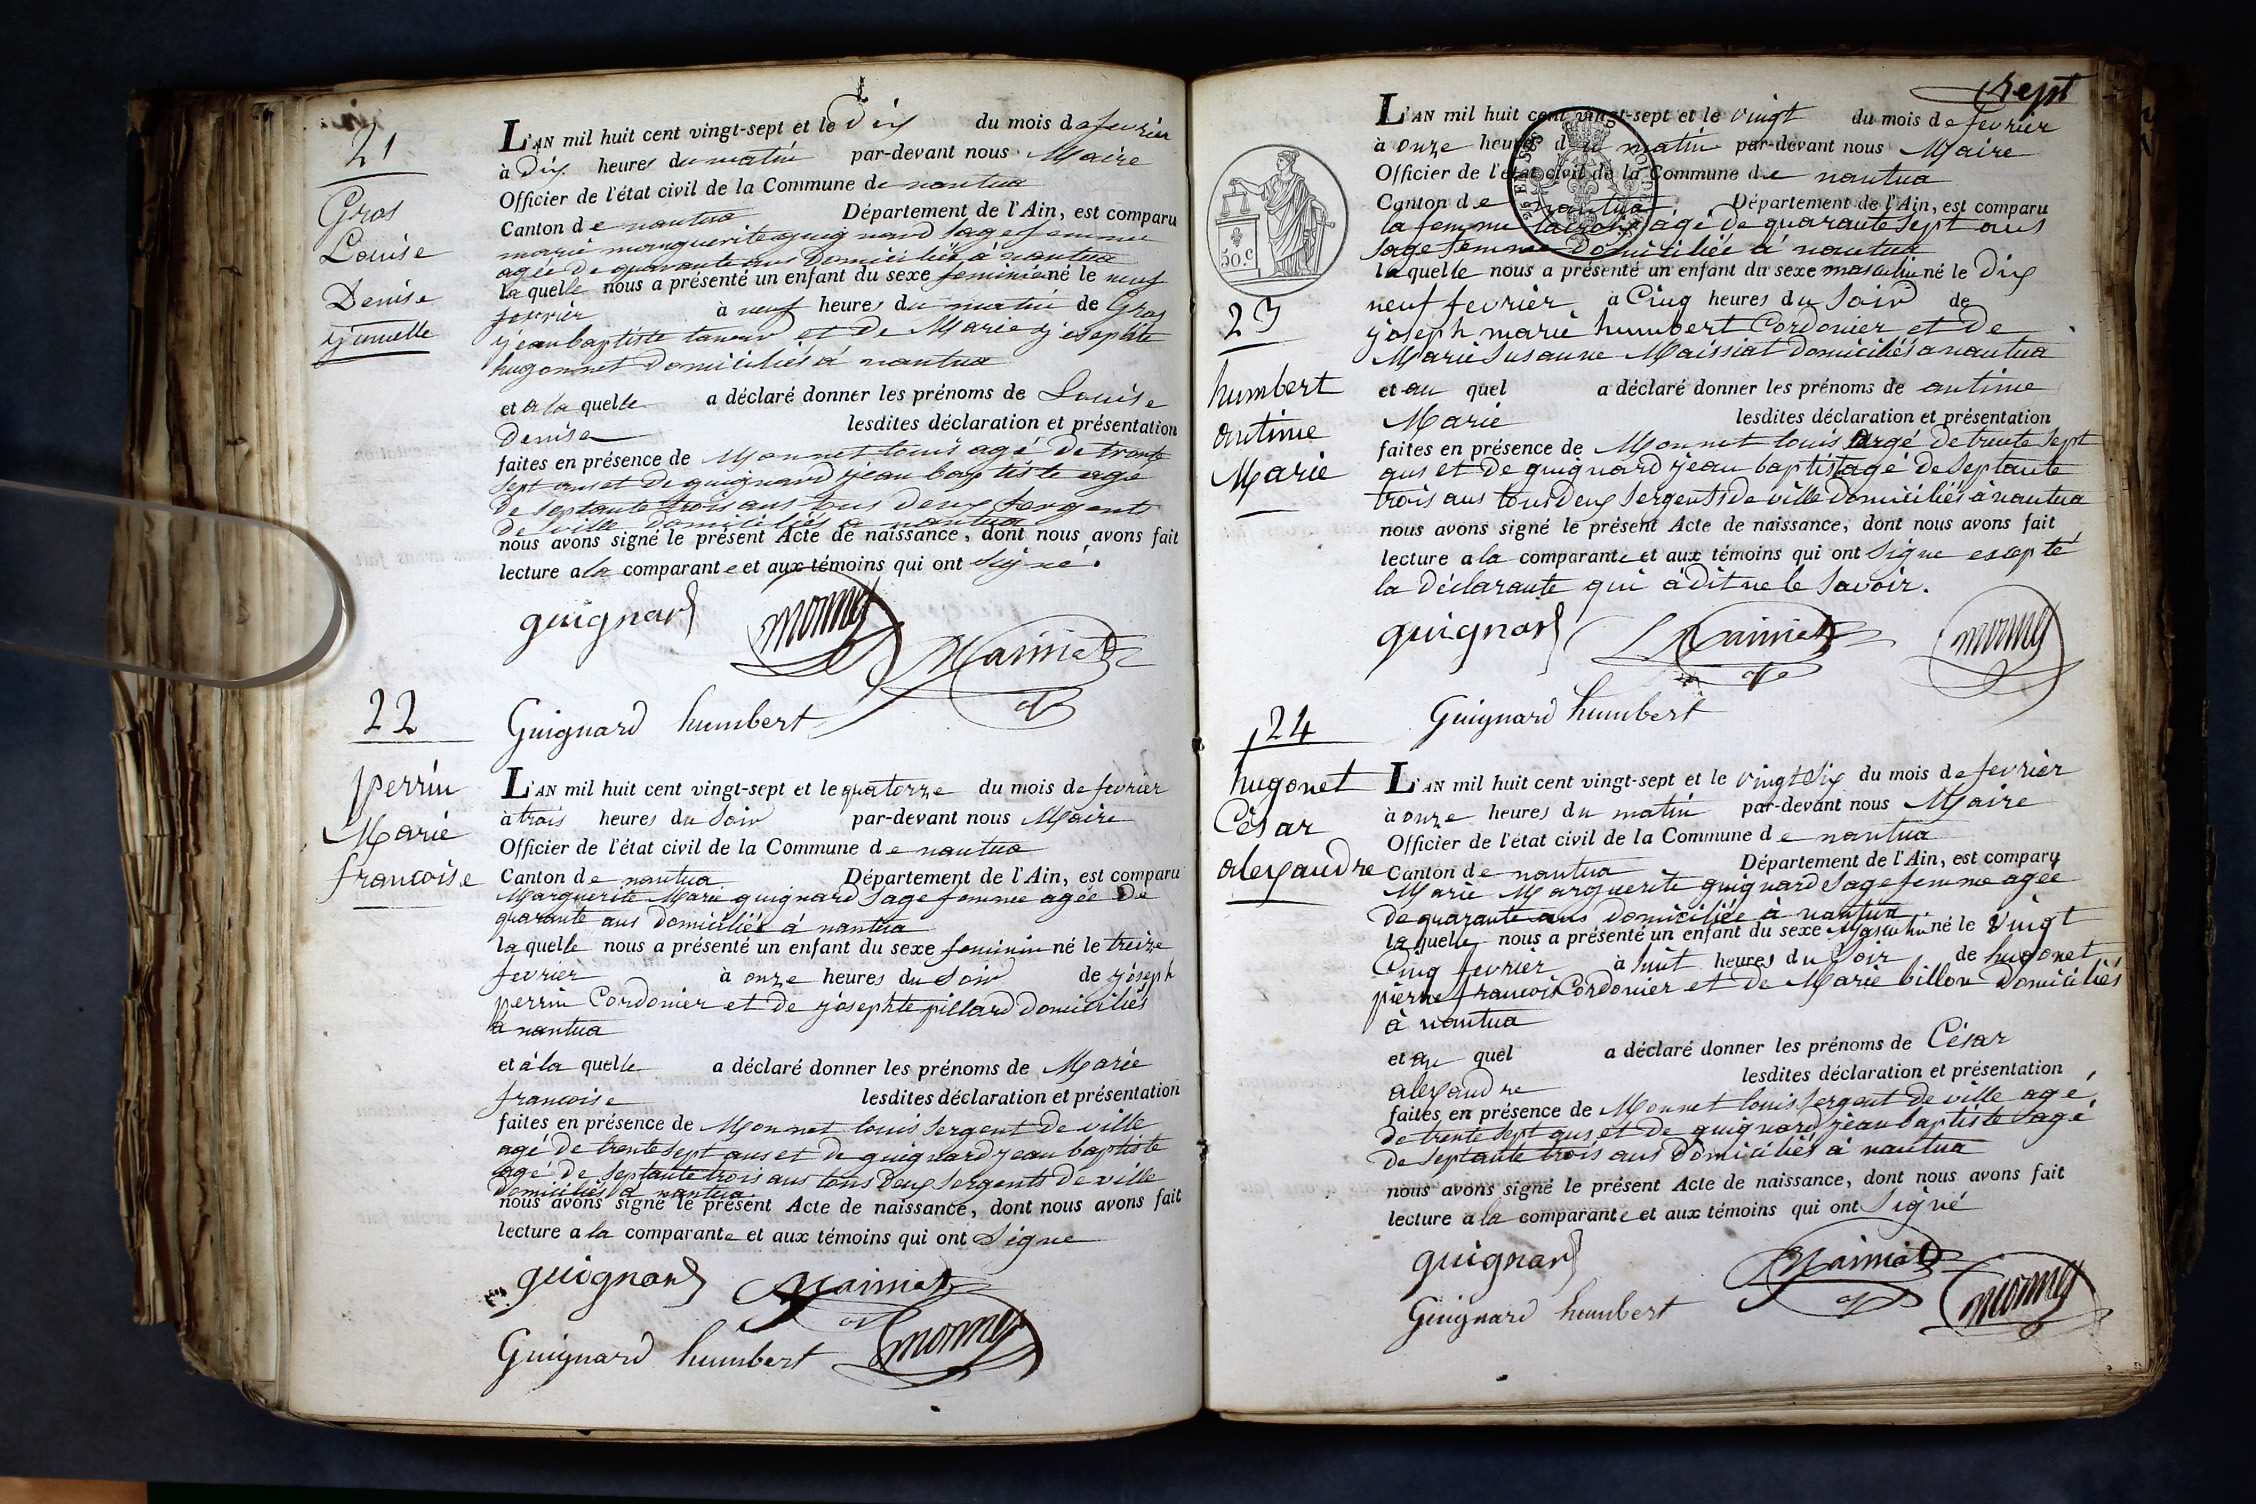 21
Gros
Louise
Denise
jumelle
L'AN mil huit cent vingt-sept et le dix du mois de fevrier
à dix heures du matin par-devant nous Maire
Officier de l'état civil de la Commune de nantua
Canton de nantua Département de l'Ain, est comparu
marie marguerite guignard sage femme
agée de quarante ans domiciliée à nantua
laquelle nous a présenté un enfant du sexe feminin né le neuf
fevrier à neuf heures du matin de Gros
jean baptiste taneur et de Marie josephte
hugonnet domiciliés à nantua
et a la quelle a déclaré donner les prénoms de Louise
Denise lesdites déclaration et présentation
faites en présence de Monnet louis agé de trente
sept ans et de guignard jean baptiste agé
de septante trois ans tous deux sergents
de ville domiciliés a nantua
nous avons signé le présent Acte de naissance, dont nous avons fait
lecture a la comparante et aux témoins qui ont signé.
guignard monnet Maissiat
Guignard humbert
22
perrin
Marie
francoise
L'AN mil huit cent vingt-sept et le quatorze du mois de fevrier
à trois heures du soir par-devant nous Maire
Officier de l'état civil de la Commune de nantua
Canton de nantua Département de l'Ain, est comparu
Marguerite Marie guignard sage femme agée De
quarante ans domiciliée à nantua
la quelle nous a présenté un enfant du sexe feminin né le treize
fevrier à onze heures du soir de joseph
perrin Cordonier et de josephte pillard domiciliés
a nantua
et à la quelle a déclaré donner les prénoms de Marie
francoise lesdites déclaration et présentation
faites en présence de Monnet louis sergent de ville
agé de trente sept ans et de guignard jean baptiste
agé de septante trois ans tous deux sergents de ville
domiciliés a nantua
nous avons signé le présent Acte de naissance, dont nous avons fait
lecture a la comparante et aux témoins qui ont signe
guignard Maissiat
Guignard humbert monnet
sept
50.c
23
humbert
antime
Marie
L'AN mil huit cent vingt-sept et le vingt du mois de fevrier
à onze heures du matin par-devant nous Maire
Officier de l'état civil de la Commune de nantua
Canton de nantua Département de l'Ain, est comparu
la femme agé de quarante sept ans
sage femme domiciliée à nantua
la quelle nous a présenté un enfant du sexe masculin né le dix
neuf fevrier à Cinq heures du soir de
joseph marie humbert Cordonier et de
Marie susanne Maissiat domiciliés a nantua
et au quel a déclaré donner les prénoms de antime
Marie lesdites déclaration et présentation
faites en présence de Monnet louis agé de trente sept
ans et de guignard jean baptist agé de septante
trois ans tous deux sergents de ville domiciliés à nantua
nous avons signé le présent Acte de naissance, dont nous avons fait
lecture a la comparante et aux témoins qui ont signe excepté
la déclarante qui à dit ne le savoir.
guignard Maissiat monnet
Guignard humbert
24
hugonet
César
alexandre
L'AN mil huit cent vingt-sept et le vingt six du mois de fevrier
à onze heures du matin par-devant nous Maire
Officier de l'état civil de la Commune de nantua
Canton de nantua Département de l'Ain, est comparu
Marie Marguerite guignard sage femme agée
de quarante ans domiciliée à nantua
la quelle nous a présenté un enfant du sexe Masculin né le vingt
Cinq fevrier à huit heures du soir de hugonet
pierre francois Cordonier et de Marie billon domiciliés
à nantua
et au quel a déclaré donner les prénoms de César
alexandre lesdites déclaration et présentation
faites en présence de Monnet louis sergent de ville agé
de trente sept ans et de guignard jean baptiste agé
de septante trois ans domiciliés à nantua
nous avons signé le présent Acte de naissance, dont nous avons fait
lecture a la comparante et aux témoins qui ont signé
guignard Maissiat
Guignard humbert monnet